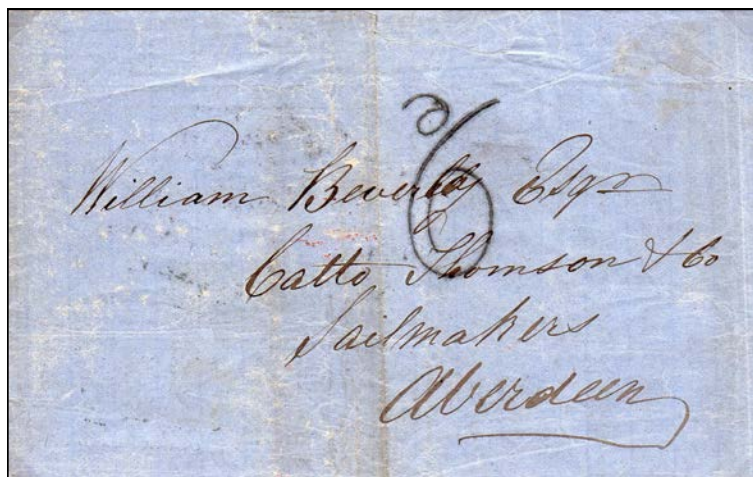 6
William Beverly Esqr
Catto Thomson & Co
Sailmakers
Aberdeen